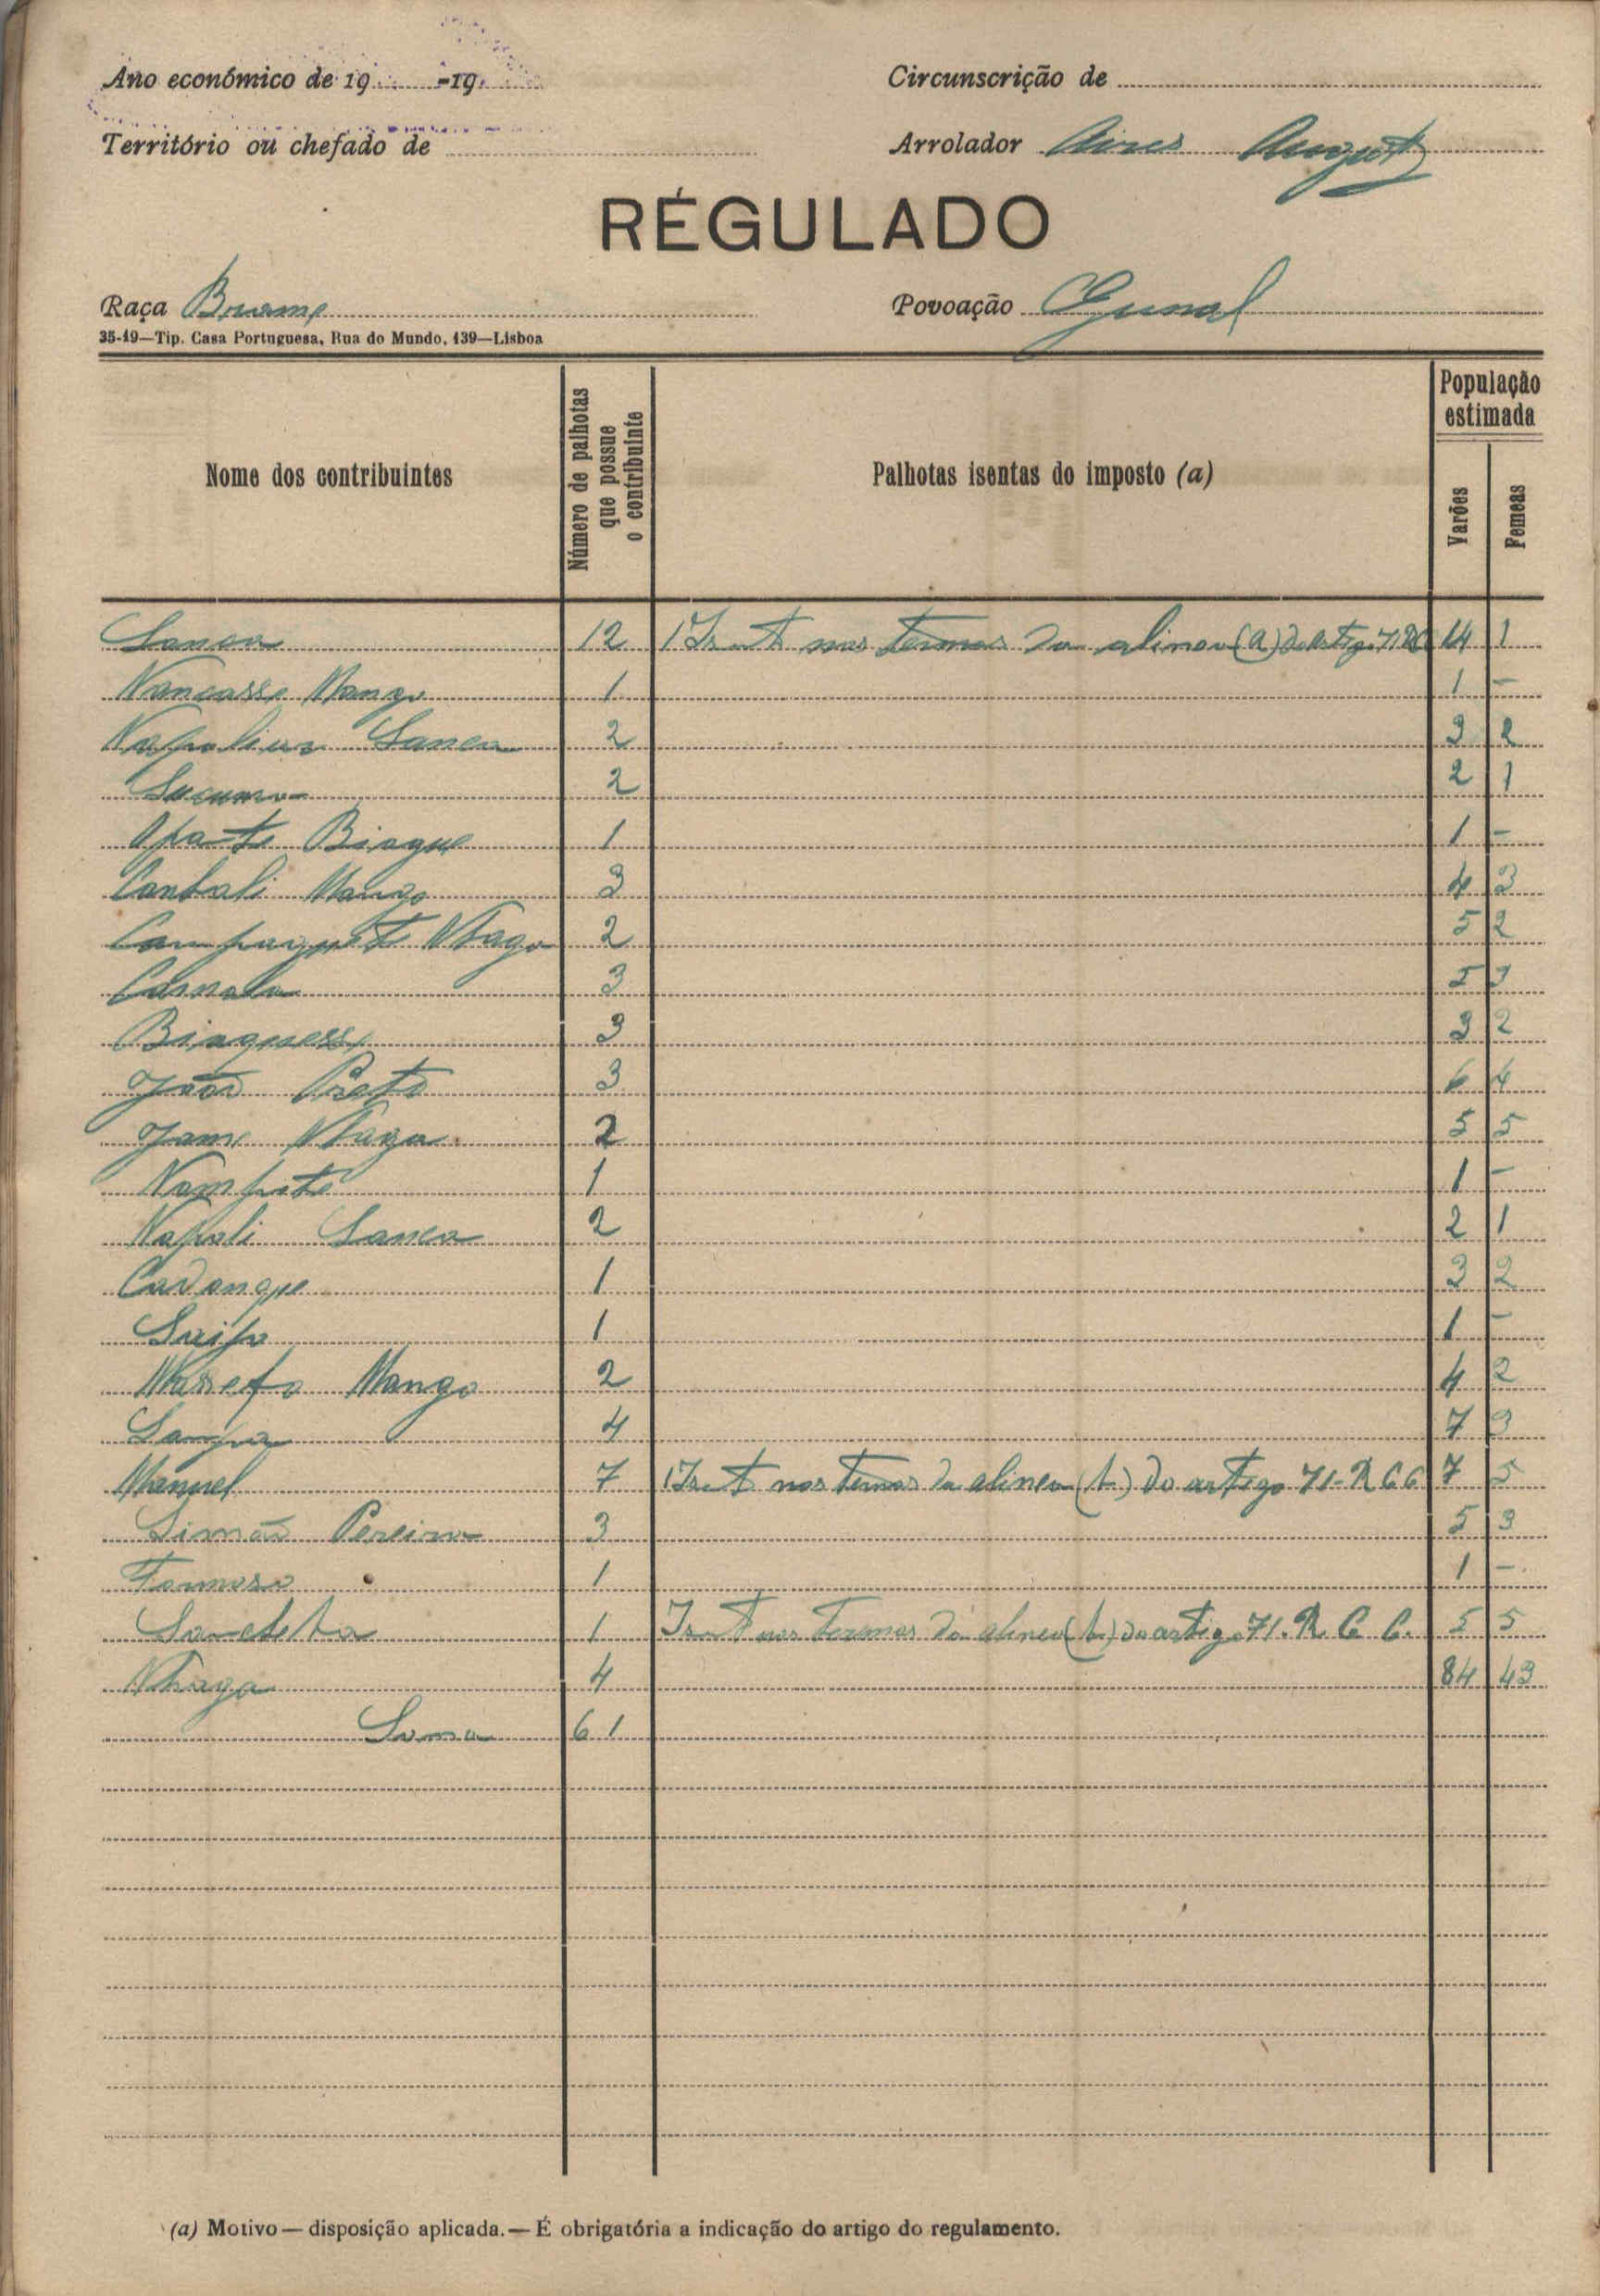 Ano económico de 19 -19
Circunscrição de
Território ou chefado de
Arrolador Aires August
RÉGULADO
Raça Brame
Povoação Gunal
35-19—Tip. Casa Portuguesa, Rua do Mundo, 139—Lisboa
Nome dos contribuintes
Número de palhotas que possue o contribuinte
Palhotas isentas do imposto (a)
População estimada
Varões
Femeas
Sanca 12 1 nos termos da alinea (a) do artigo 71 14 1
Mango 1 1 -
Sanca 2 3 2
2 2 1
Biague 1 1 -
Mango 3 4 3
2 5 2
3 5 3
3 3 2
João Preto 3 6 4
2 5 5
1 1 -
Napoli Sanca 2 2 1
Cadongue 1 3 2
1 1 -
Mango 2 4 2
4 7 3
Manuel 7 1 nos termos da alinea (b) do artigo 71-R C C 7 5
Simão Pereira 3 5 3
Formoso 1 1 -
1 nos termos da alinea (b) do artigo 71. R. C. C. 5 5
Nhaga 4 84 43
Soma 61
(a) Motivo — disposição aplicada. — É obrigatória a indicação do artigo do regulamento.